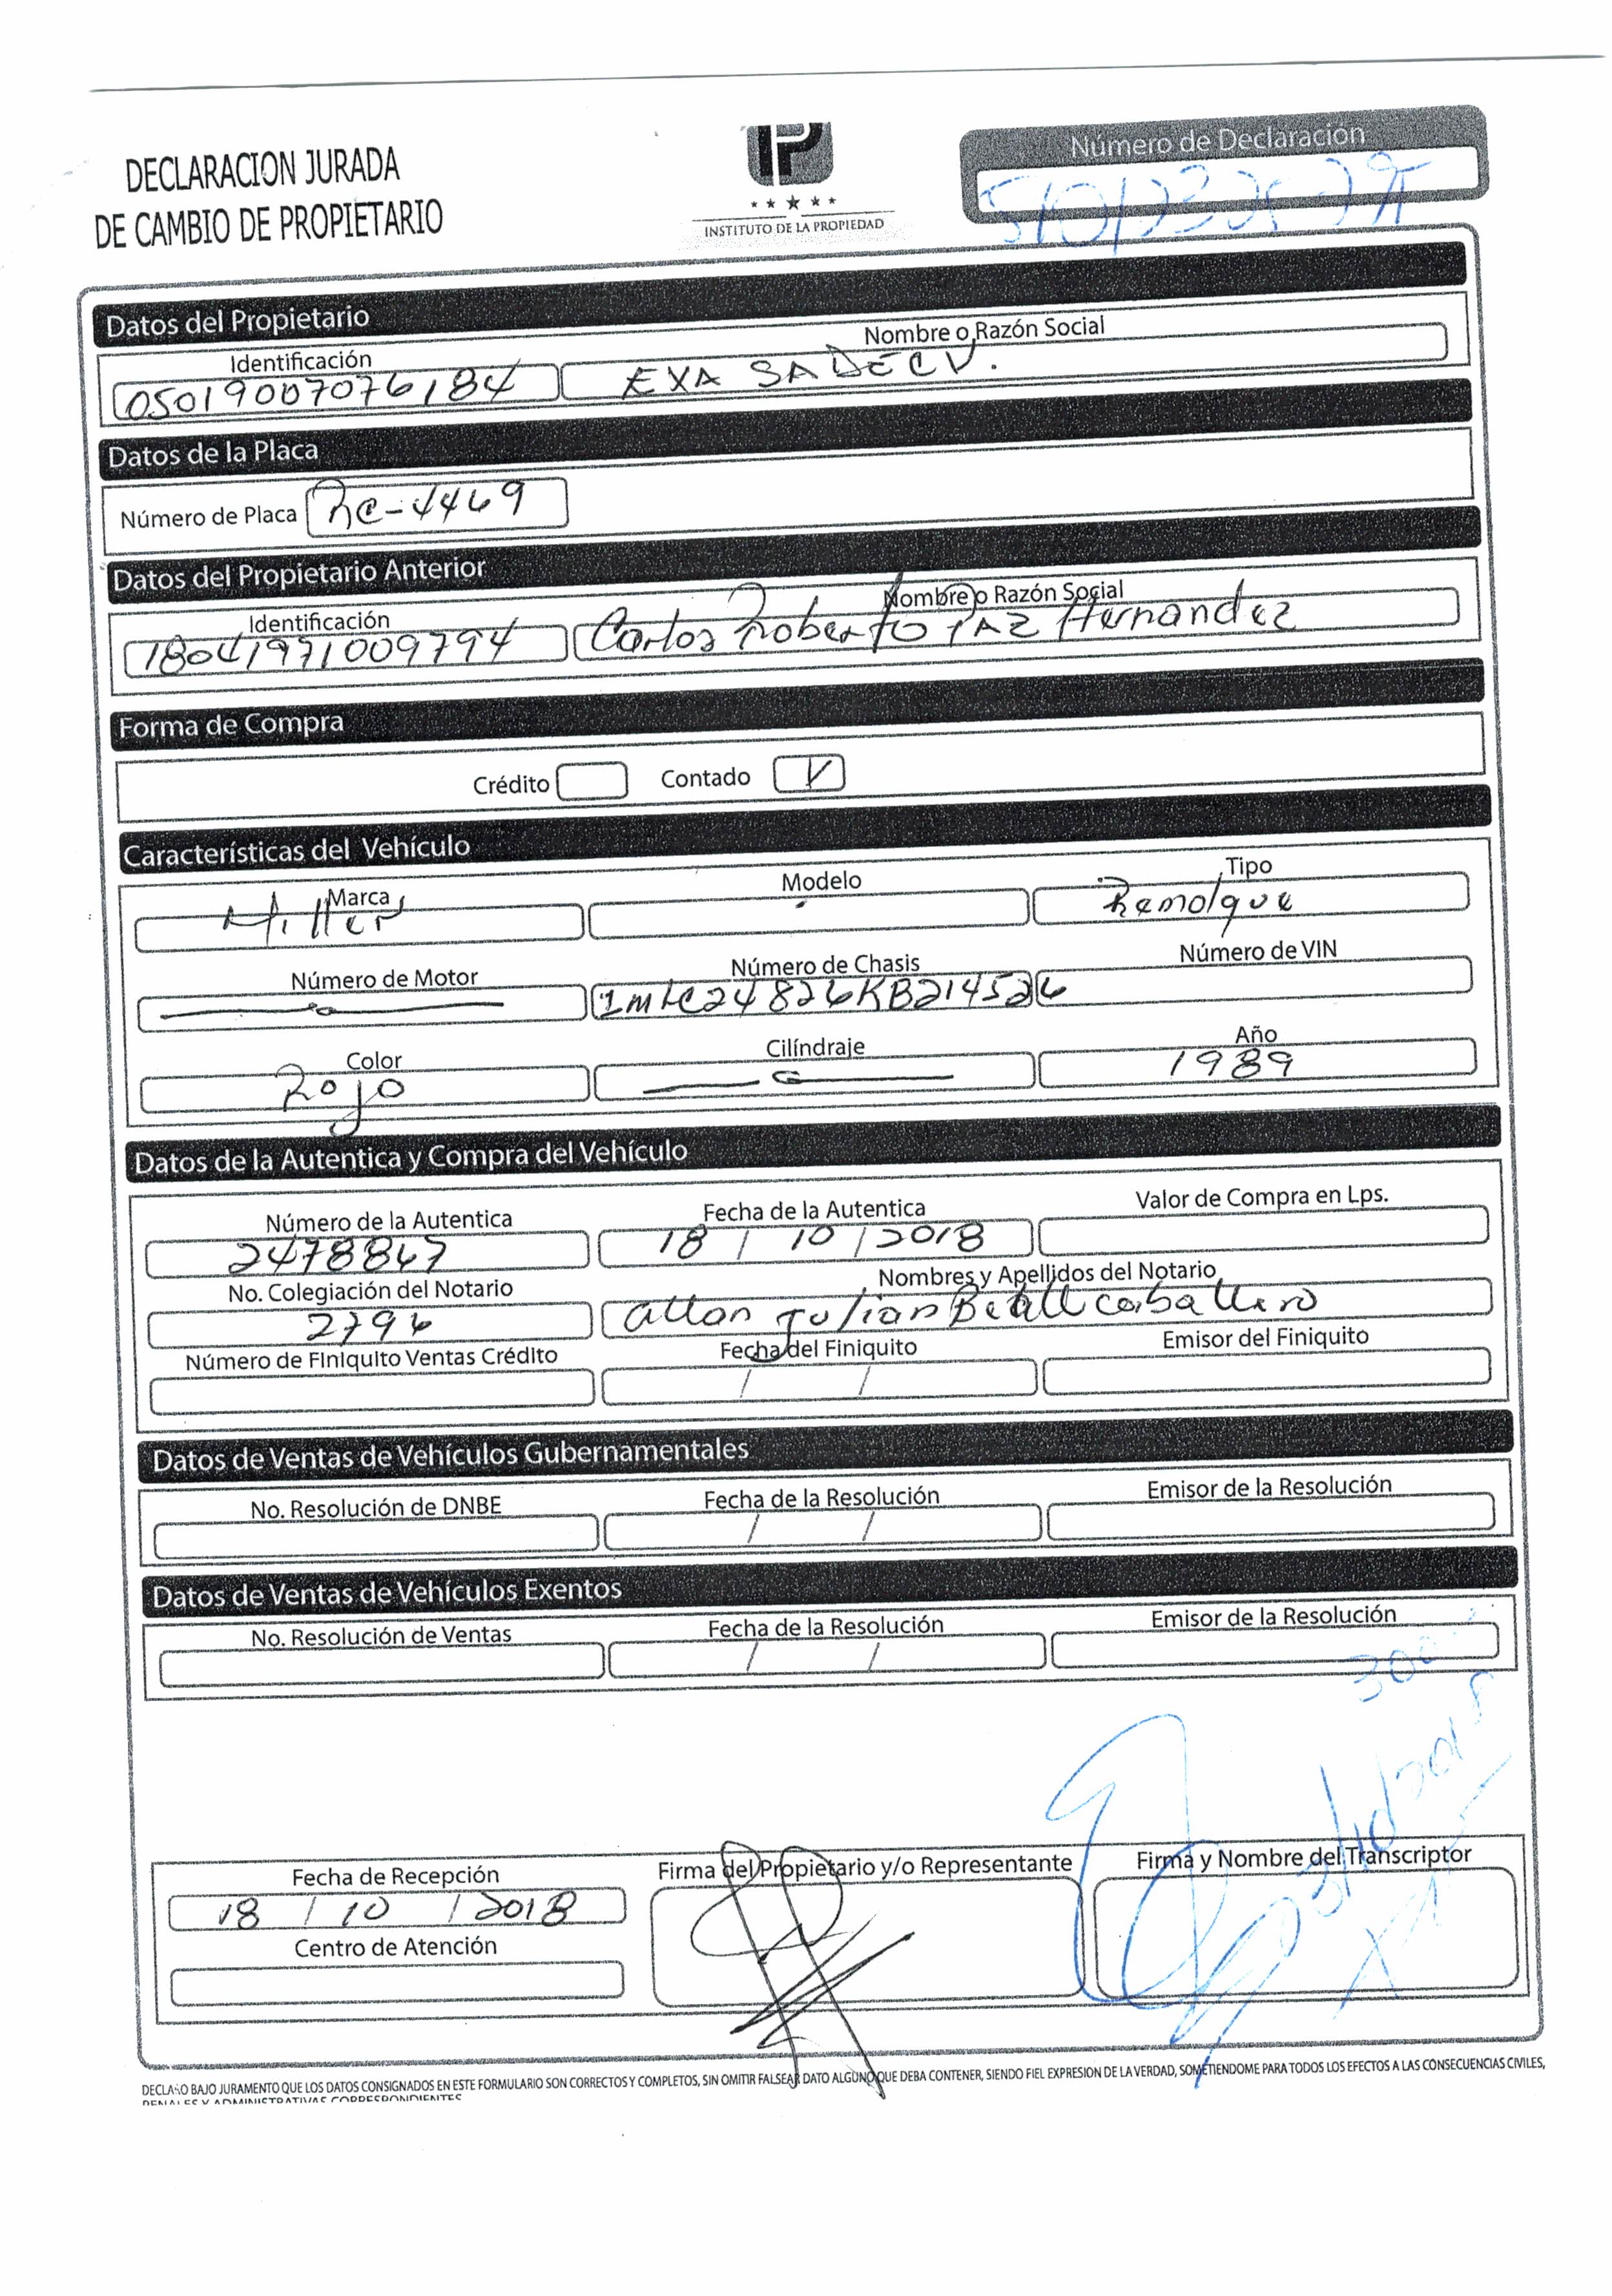 DECLARACION JURADA
DE CAMBIO DE PROPIETARIO
IP
INSTITUTO DE LA PROPIEDAD
Número de Declaración
Datos del Propietario
Identificación Nombre o Razón Social
05019007076184 EXA SA DE CV.
Datos de la Placa
Número de Placa RC-4469
Datos del Propietario Anterior
Identificación Nombre o Razón Social
18041971009794 Carlos Roberto PAZ Hernandez
Forma de Compra
Crédito Contado V
Características del Vehículo
Marca Modelo Tipo
Miller Remolque
Número de Motor Número de Chasis Número de VIN
1MLC24826KB214526
Color Cilíndraje Año
Rojo 1989
Datos de la Autentica y Compra del Vehículo
Número de la Autentica Fecha de la Autentica Valor de Compra en Lps.
2478867 18 / 10 / 2018
No. Colegiación del Notario Nombres y Apellidos del Notario
2796 allan Julian Beall caballero
Número de Finiquito Ventas Crédito Fecha del Finiquito Emisor del Finiquito
/ /
Datos de Ventas de Vehículos Gubernamentales
No. Resolución de DNBE Fecha de la Resolución Emisor de la Resolución
/ /
Datos de Ventas de Vehículos Exentos
No. Resolución de Ventas Fecha de la Resolución Emisor de la Resolución
/ /
300
Fecha de Recepción Firma del Propietario y/o Representante Firma y Nombre del Transcriptor
18 / 10 / 2018
Centro de Atención
DECLARO BAJO JURAMENTO QUE LOS DATOS CONSIGNADOS EN ESTE FORMULARIO SON CORRECTOS Y COMPLETOS, SIN OMITIR FALSEAR DATO ALGUNO QUE DEBA CONTENER, SIENDO FIEL EXPRESION DE LA VERDAD, SOMETIENDOME PARA TODOS LOS EFECTOS A LAS CONSECUENCIAS CIVILES,
PENALES Y ADMINISTRATIVAS CORRESPONDIENTES